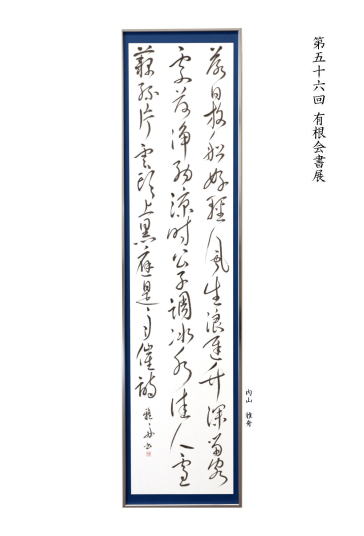 第五十六回 有根会書展
落日放船好輕風生浪遅竹深留客
處荷浄納涼時公子調冰水佳人雪
藕絲片雲頭上黒應是雨催詩
内山 雅舟